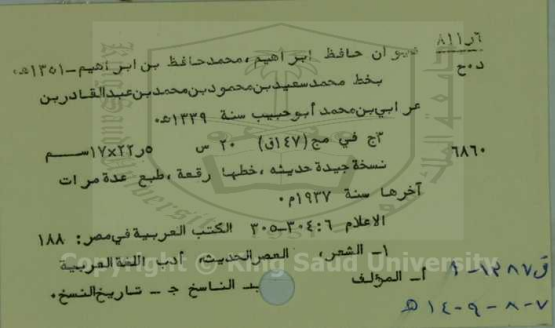 ٨١١٫٦
د ٠ ح
ديوان حافظ ابراهيم ، محمد حافظ بن ابراهيم - ١٣٥١هـ٠
بخط محمد سعيد بن محمود بن محمد بن عبد القادر بن
عرابي بن محمد أبو حبيب سنة ١٣٣٩هـ٠
٣ج في مج (١٤٧ق) ٢٠ س ٢٢٫٥×١٧ســم
٦٨٦٠
نسخة جيدة حديثه ، خطها رقعة ، طبع عدة مرات
آخرها سنة ١٩٣٧م٠
الاعلام ٦ : ٣٠٤-٣٠٥ الكتب العربية في مصر : ١٨٨
١- الشعر ، العصر الحديث أدب اللغة العربية
أ- المؤلف ب- الناسخ ج - تاريخ النسخ ٠
Copyright © King Saud University
٧-٨-١٤٠٩هـ